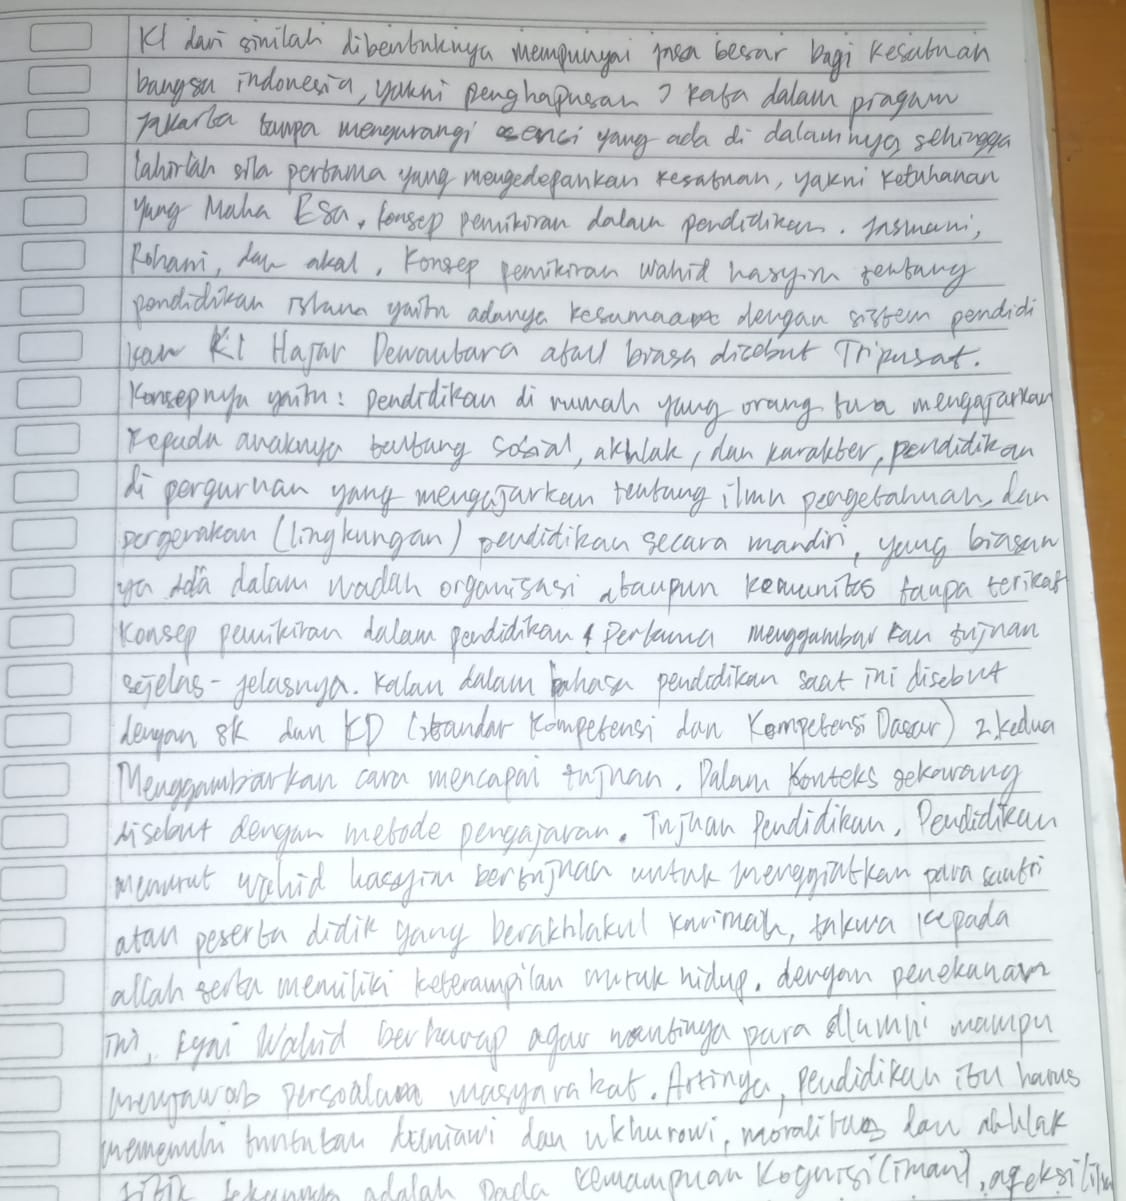 KI dari sinilah dibentuknya mempunyai jasa besar bagi kesatuan
bangsa indonesia, yakni penghapusan 7 kata dalam piagam
jakarta tanpa mengurangi esenci yang ada di dalamnya sehingga
lahirlah sila pertama yang mengedepankan kesatuan, yakni ketuhanan
yang Maha Esa. Konsep pemikiran dalam pendidikan. Jasmani,
Rohani, dan akal. Konsep pemikiran Wahid hasyim tentang
pendidikan islam yaitu adanya kesamaan dengan sistem pendidi
kan KI Hajar Dewantara atau biasa disebut Tripusat.
Konsepnya yaitu: pendidikan di rumah yang orang tua mengajarkan
kepada anaknya tentang sosial, akhlak, dan karakter, pendidikan
di perguruan yang mengajarkan tentang ilmu pengetahuan, dan
pergerakan (lingkungan) pendidikan secara mandiri, yang biasan
ya ada dalam wadah organisasi ataupun komunitas tanpa terikat
Konsep pemikiran dalam pendidikan 1 Pertama menggambarkan tujuan
sejelas-jelasnya. Kalau dalam bahasa pendidikan saat ini disebut
dengan SK dan KD (standar Kompetensi dan Kompetensi Dasar) 2. Kedua
Menggambarkan cara mencapai tujuan. Dalam Konteks sekarang
disebut dengan metode pengajaran. Tujuan Pendidikan. Pendidikan
menurut wahid hasyim bertujuan untuk menggiatkan para santri
atau peserta didik yang berakhlakul karimah, takwa kepada
allah serta memiliki keterampilan untuk hidup. dengan penekanan
ini, kyai Wahid berharap agar nantinya para alumni mampu
menjawab persoalan masyarakat. Artinya, pendidikan itu harus
memenuhi tuntutan duniawi dan ukhurowi, moralitas dan akhlak
titik tekannya adalah pada kemampuan kognisi (iman), afeksi (ilm